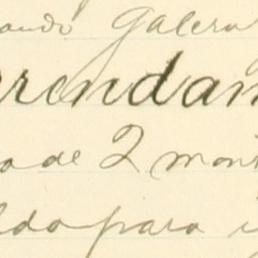 ando Galera
rrendam
o de 2 mont
ldo para i